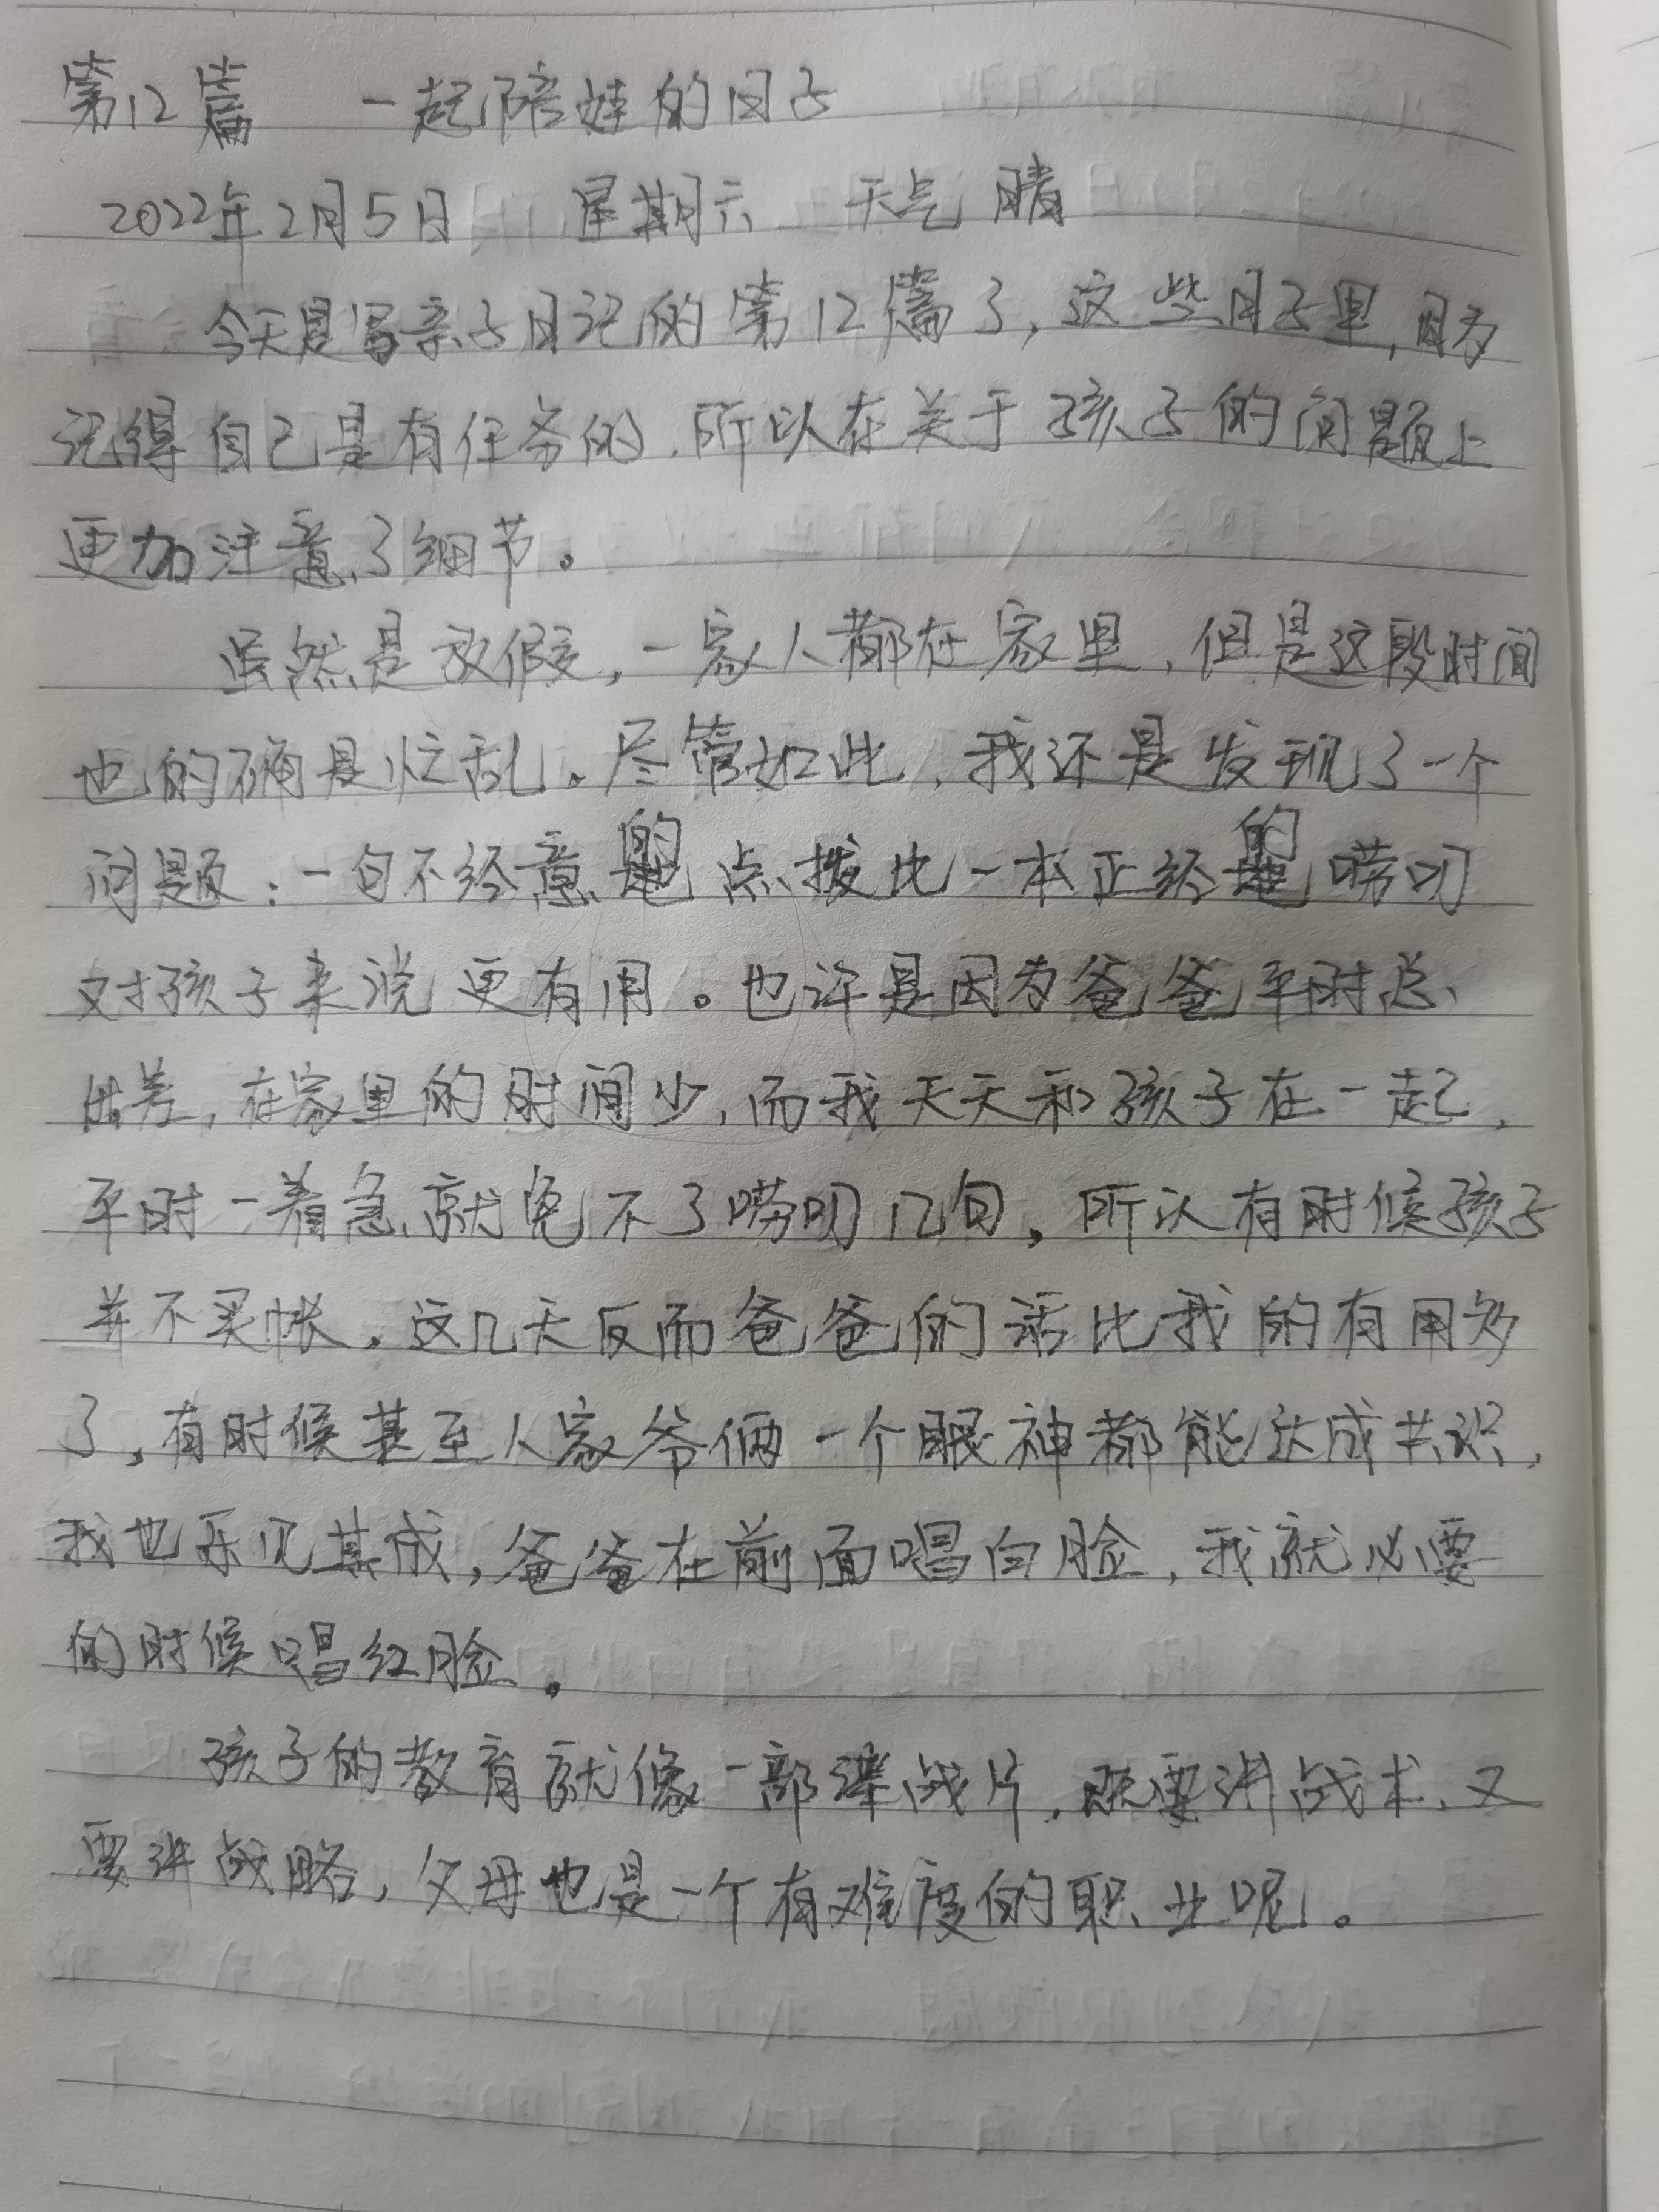 第12篇 一起陪娃的日子
2022年2月5日 星期六 天气 晴
今天是写亲子日记的第12篇了,这些日子里,因为
记得自己是有任务的,所以在关于孩子的问题上
更加注意了细节。
虽然是放假,一家人都在家里,但是这段时间
也的确是忙乱。尽管如此,我还是发现了一个
问题:一句不经意的点拨比一本正经的唠叨
对孩子来说更有用。也许是因为爸爸平时总
出差,在家里的时间少,而我天天和孩子在一起,
平时一着急就免不了唠叨几句,所以有时候孩子
并不买帐,这几天反而爸爸的话比我的有用多
了,有时候甚至人家爷俩一个眼神都能达成共识,
我也乐见其成,爸爸在前面唱白脸,我就必要
的时候唱红脸。
孩子的教育就像一部谍战片,既要讲战术,又
要讲战略,父母也是一个有难度的职业呢。